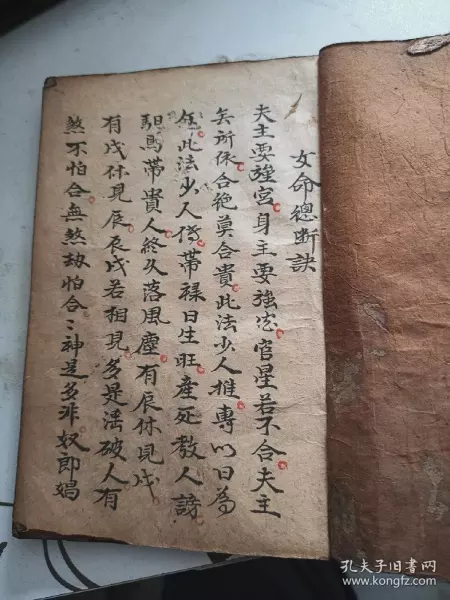 女命總断訣
夫主要強宮。身主要強。官星若不合。夫主
無所依。合絶莫合貴。此法少人推。專以日為
此法少人傳。帶禄日生旺。產死教人謗。
馹馬帶貴人。終久落風塵。有辰休見戌。
有戌休見辰。辰戌若相見。多是淫破人。有
煞不怕合。無煞却怕合。合神是多非奴即娼
孔夫子旧书网
www.kongfz.com